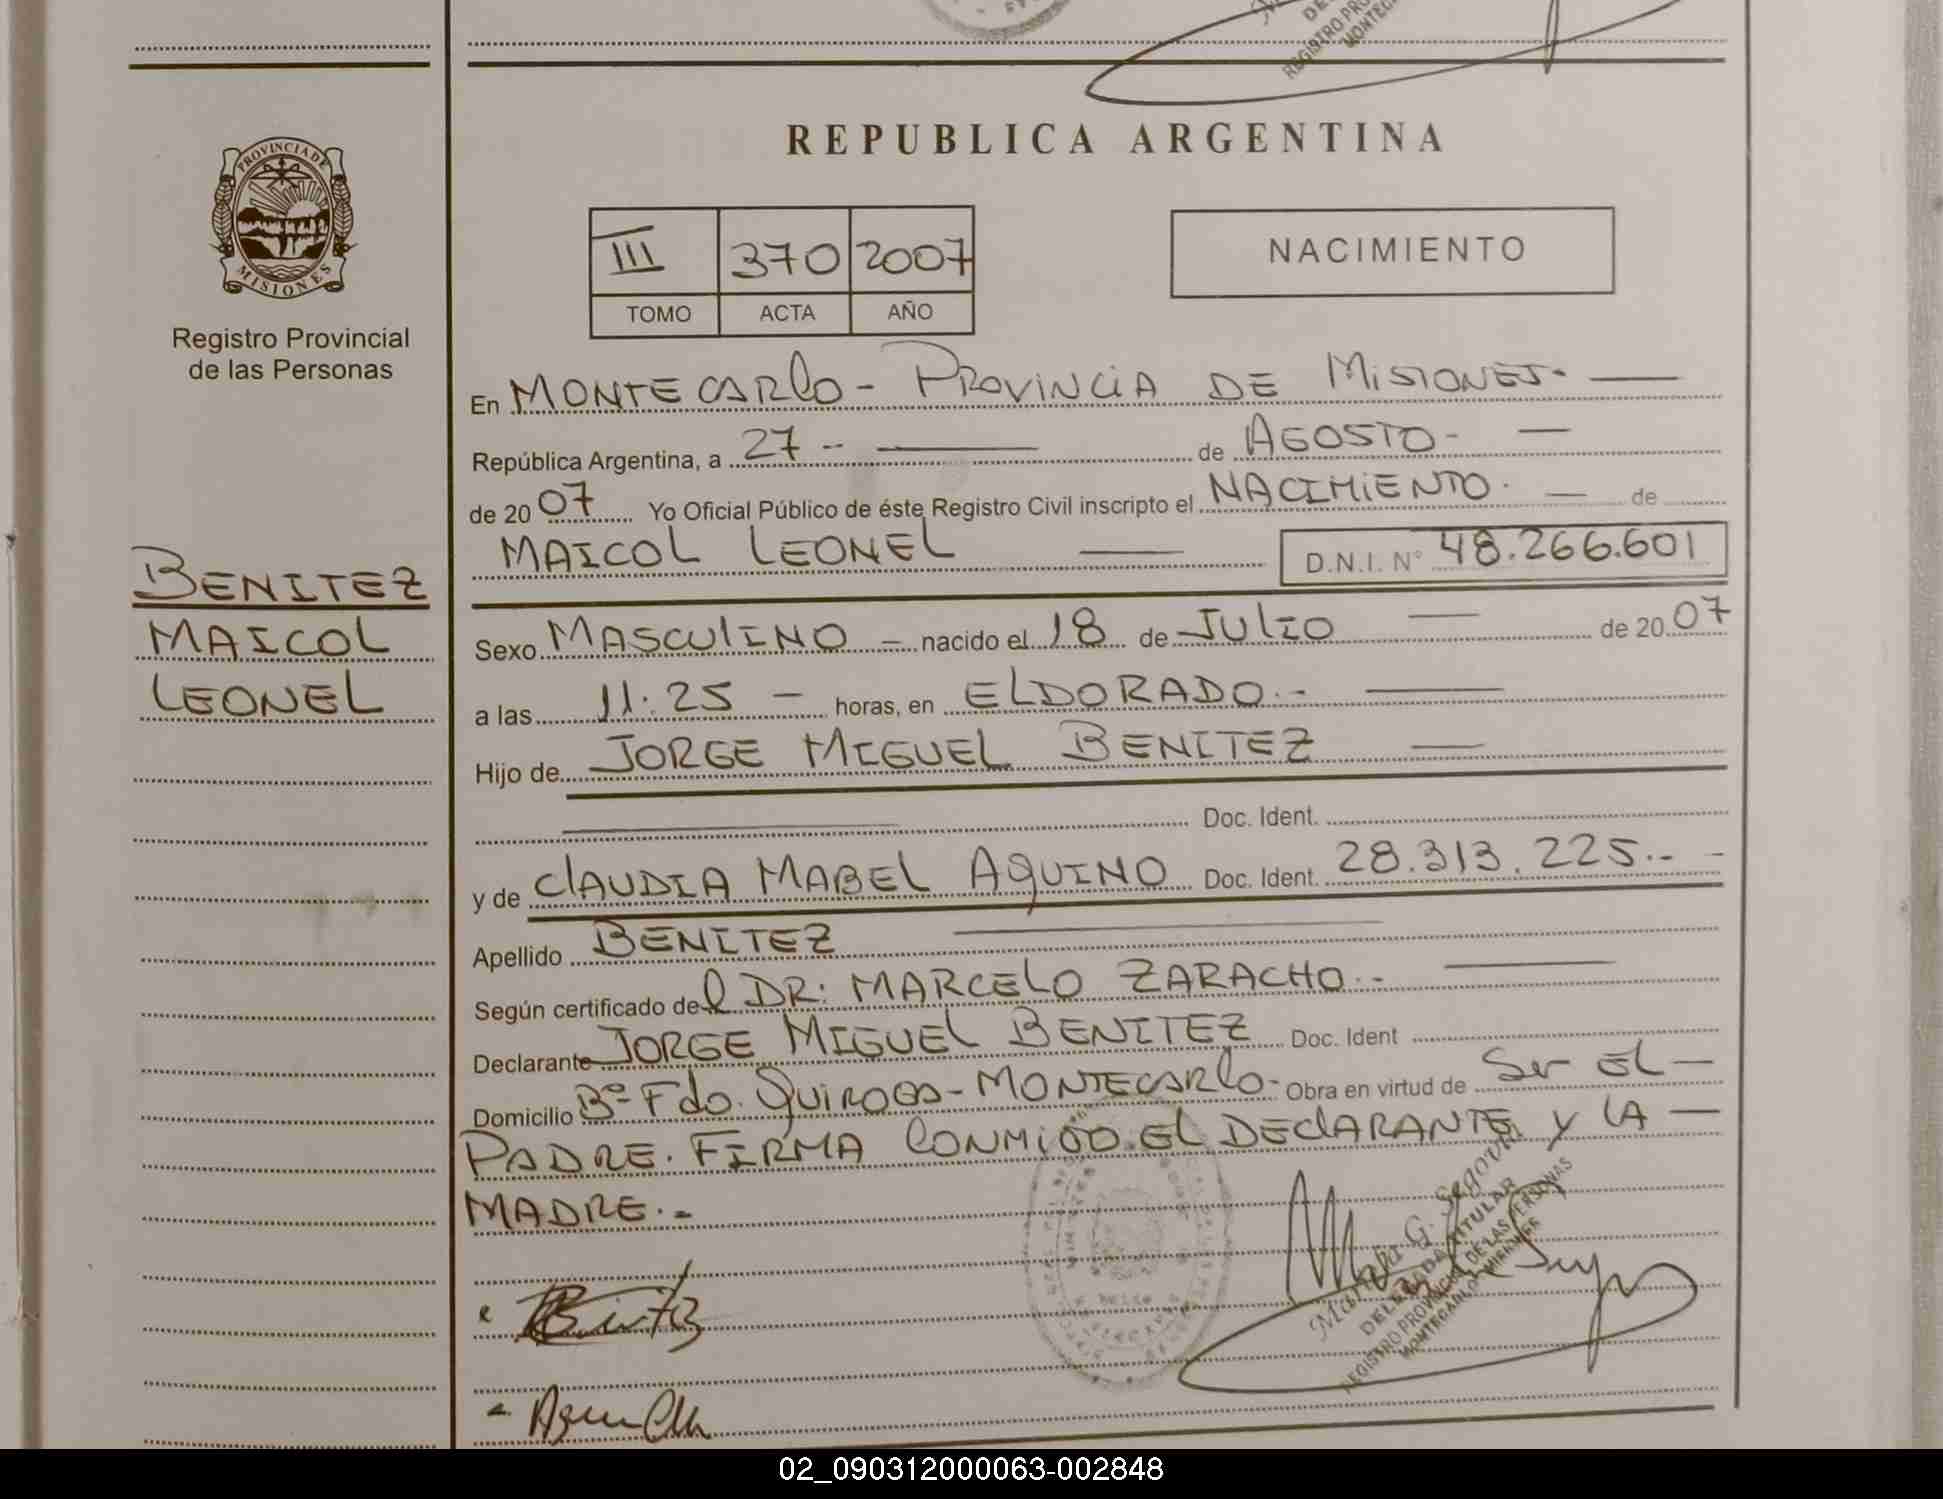 REPUBLICA ARGENTINA
PROVINCIA DE MISIONES
Registro Provincial
de las Personas
III 370 2007
TOMO ACTA AÑO
NACIMIENTO
En MONTECARLO - PROVINCIA DE MISIONES.
República Argentina, a 27 -- de AGOSTO -
de 2007 Yo Oficial Público de éste Registro Civil inscripto el NACIMIENTO. de
MAICOL LEONEL D.N.I. N° 48.266.601
BENITEZ
MAICOL
LEONEL
Sexo MASCULINO - nacido el 18 de JULIO de 2007
a las 11:25 - horas, en ELDORADO.-
Hijo de JORGE MIGUEL BENITEZ
Doc. Ident.
y de CLAUDIA MABEL AQUINO Doc. Ident. 28.313.225.--
Apellido BENITEZ
Según certificado del DR: MARCELO ZARACHO.-
Declarante JORGE MIGUEL BENITEZ Doc. Ident
Domicilio Bº Fdo. QUIROGA - MONTECARLO - Obra en virtud de Ser EL -
PADRE. FIRMA CONMIGO EL DECLARANTE Y LA -
MADRE.-
DELEGADA TITULAR
REGISTRO PROVINCIAL DE LAS PERSONAS
02_090312000063-002848